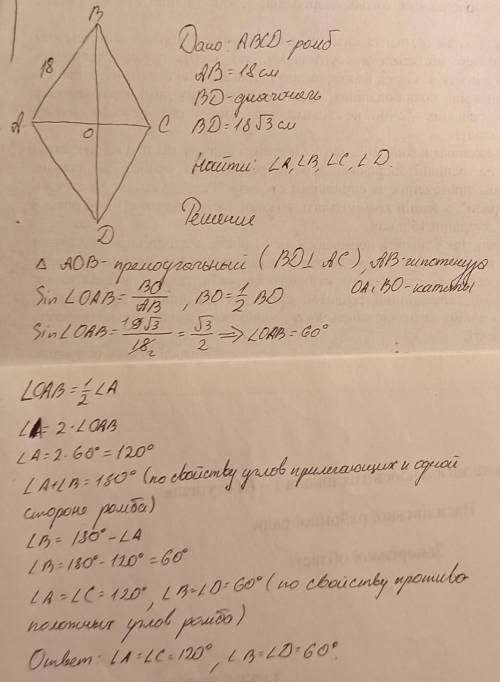 B
18
A
O
C
D
Дано: ABCD-ромб
AB=18см
BD-диагональ
BD=18√3 см
Найти: ∠A, ∠B, ∠C, ∠D.
Решение
Δ AOB-прямоугольный (BD⊥AC), AB-гипотенуза
OA и BO-катеты
Sin∠OAB=BO/AB, BO=1/2 BD
Sin∠OAB=19√3/18₂=√3/2⇒∠OAB=60°
∠OAB=1/2∠A
∠A=2·∠OAB
∠A=2·60°=120°
∠A+∠B=180° (по свойству углов прилегающих к одной
стороне ромба)
∠B=180°-∠A
∠B=180°-120°=60°
∠A=∠C=120°, ∠B=∠D=60° (по свойству противо
положных углов ромба)
Ответ: ∠A=∠C=120°, ∠B=∠D=60°.